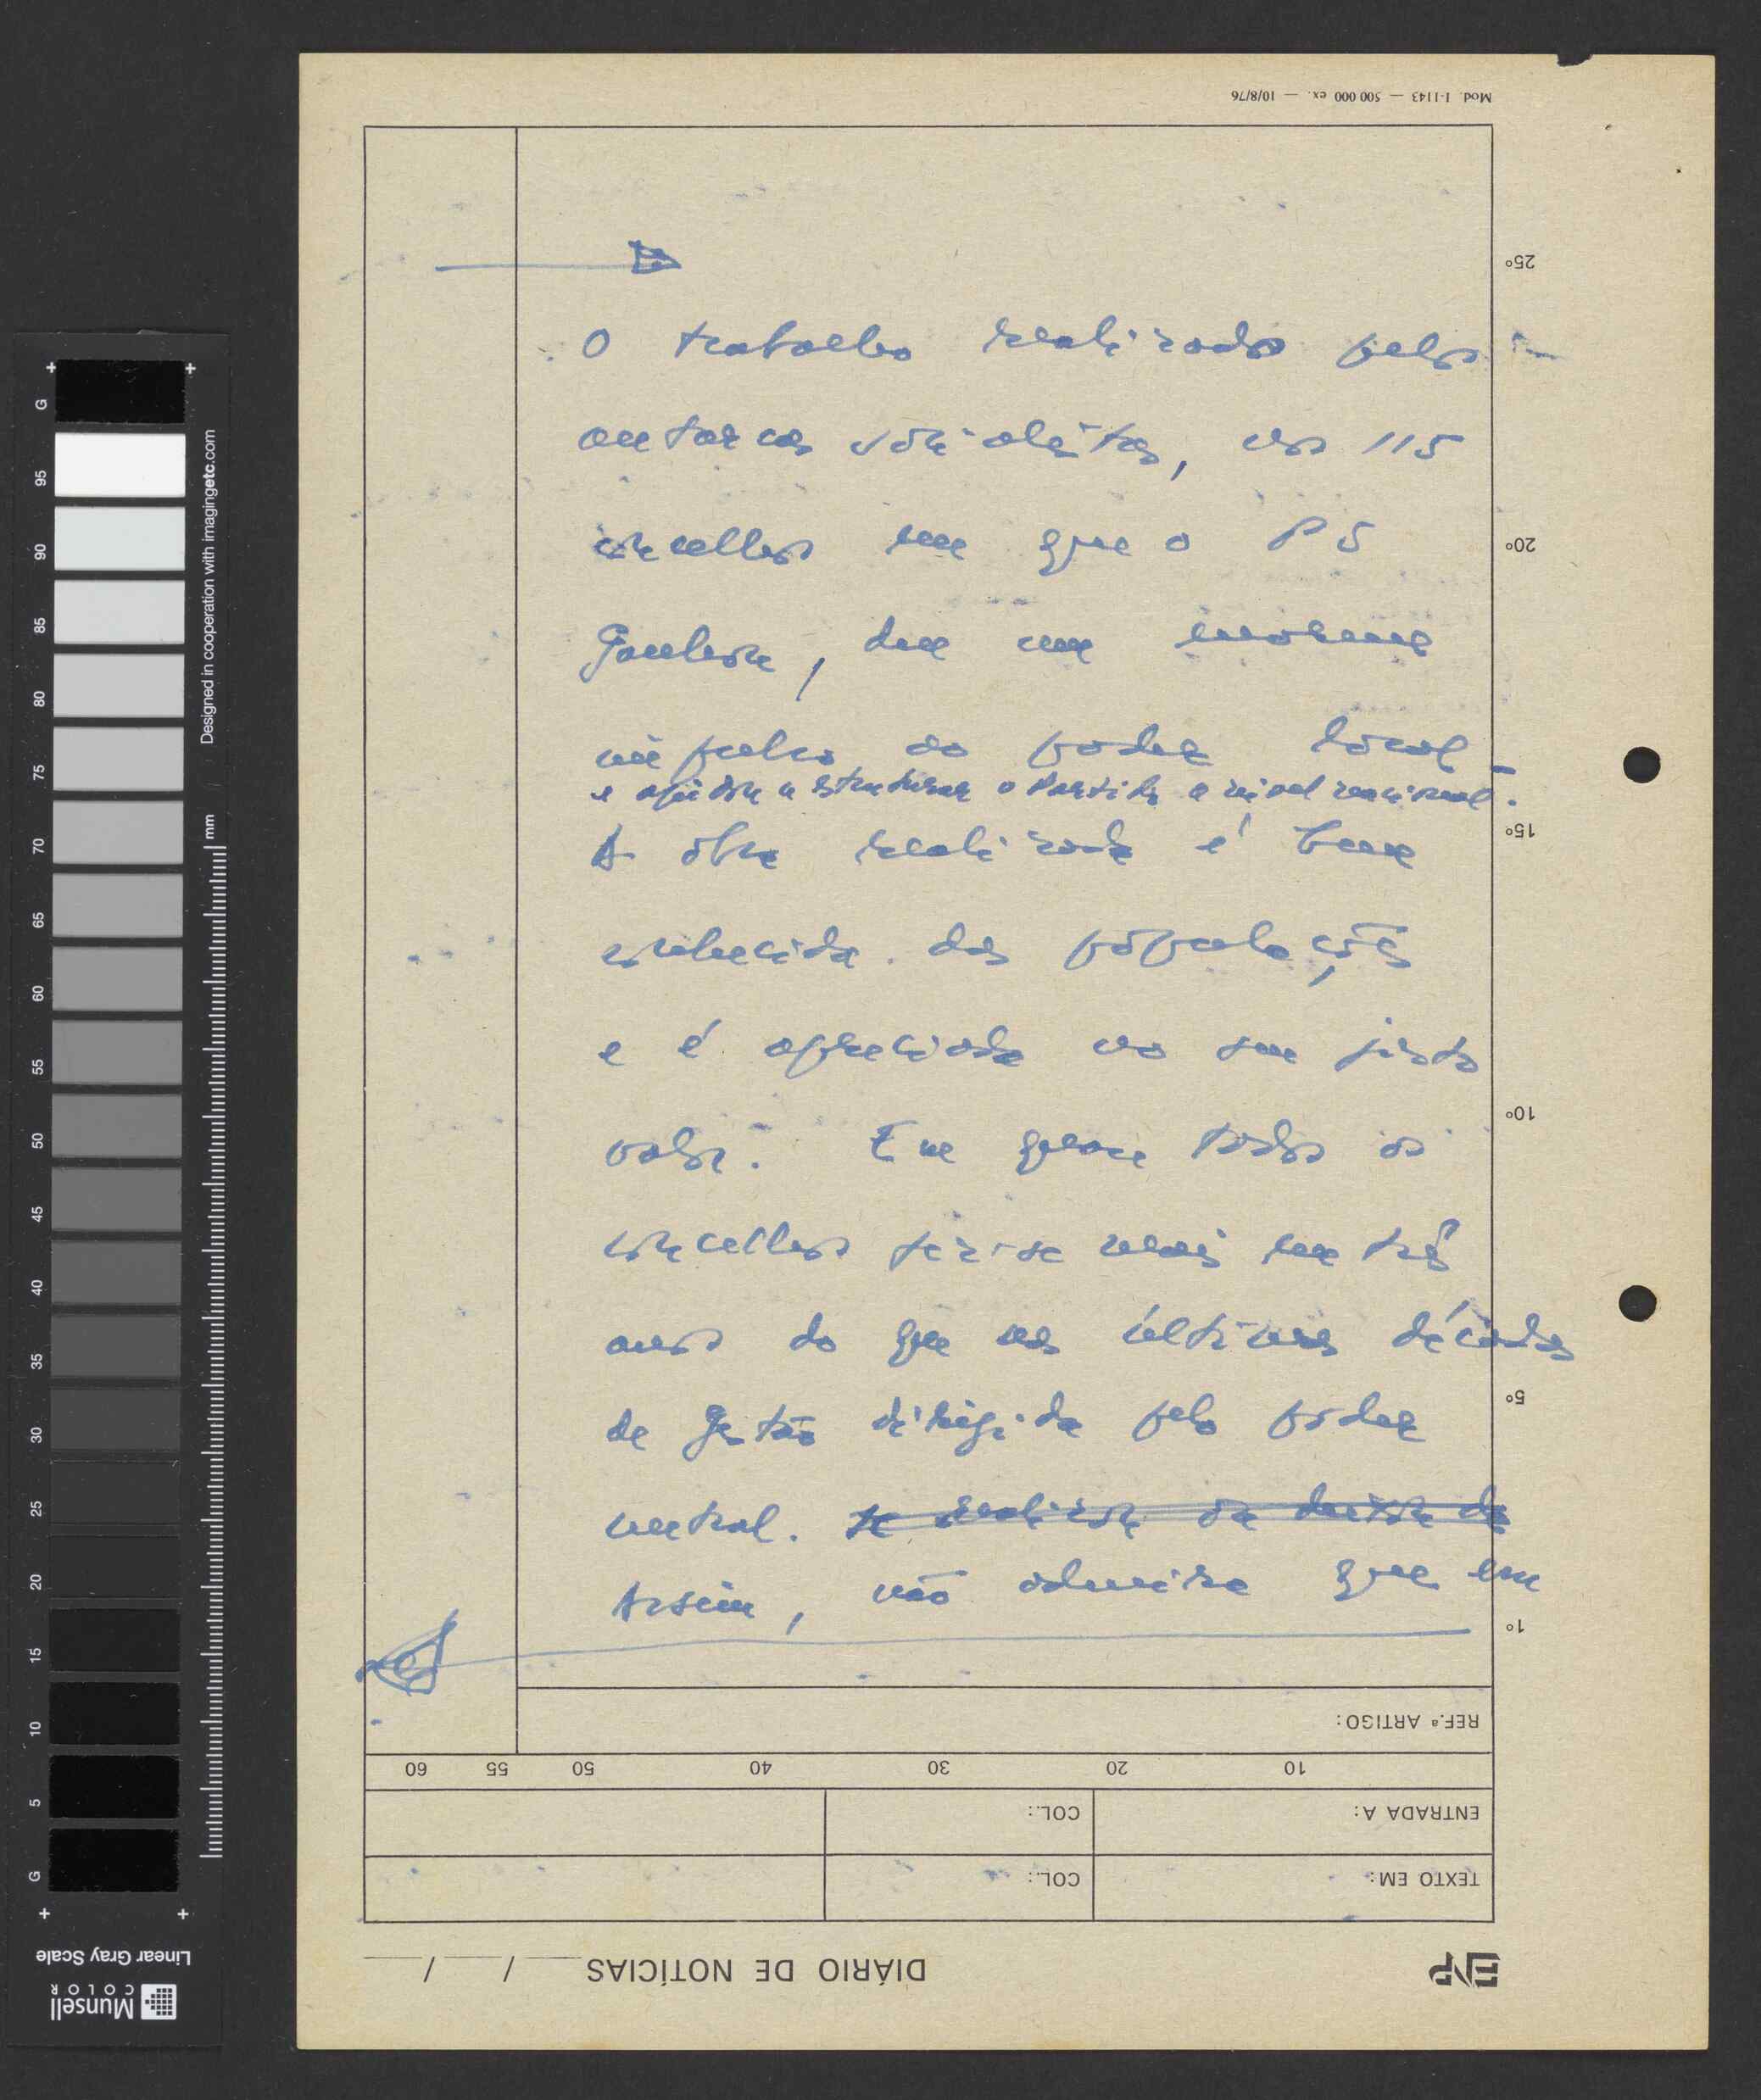 Mod. I-1143 — 500 000 ex. — 10/8/76
25º
O trabalho realizado pelos
autarcas socialistas, nos 115
20º
concelhos em que o PS
Ganhou, deu um enorme
impulso ao poder local
e ajudou a estruturar o Partido a nível nacional.
15º
A obra realizada é bem
conhecida das populações
e é apreciada no seu justo
10º
valor. Em quase todos os
concelhos fez-se mais em três
anos do que nas últimas décadas
5º
de gestão dirigida pelo poder
central. se realizou
Assim, não admira que em
1º
REF.ª ARTIGO:
60 55 50 40 30 20 10
COL.: ENTRADA A:
COL.: TEXTO EM:
DIÁRIO DE NOTÍCIAS / /
ENP
Designed in cooperation with imagingetc.com
mm
G 95 90 85 80 75 70 65 60 55 50 45 40 35 30 25 20 15 10 5 G
Linear Gray Scale
Munsell
COLOR